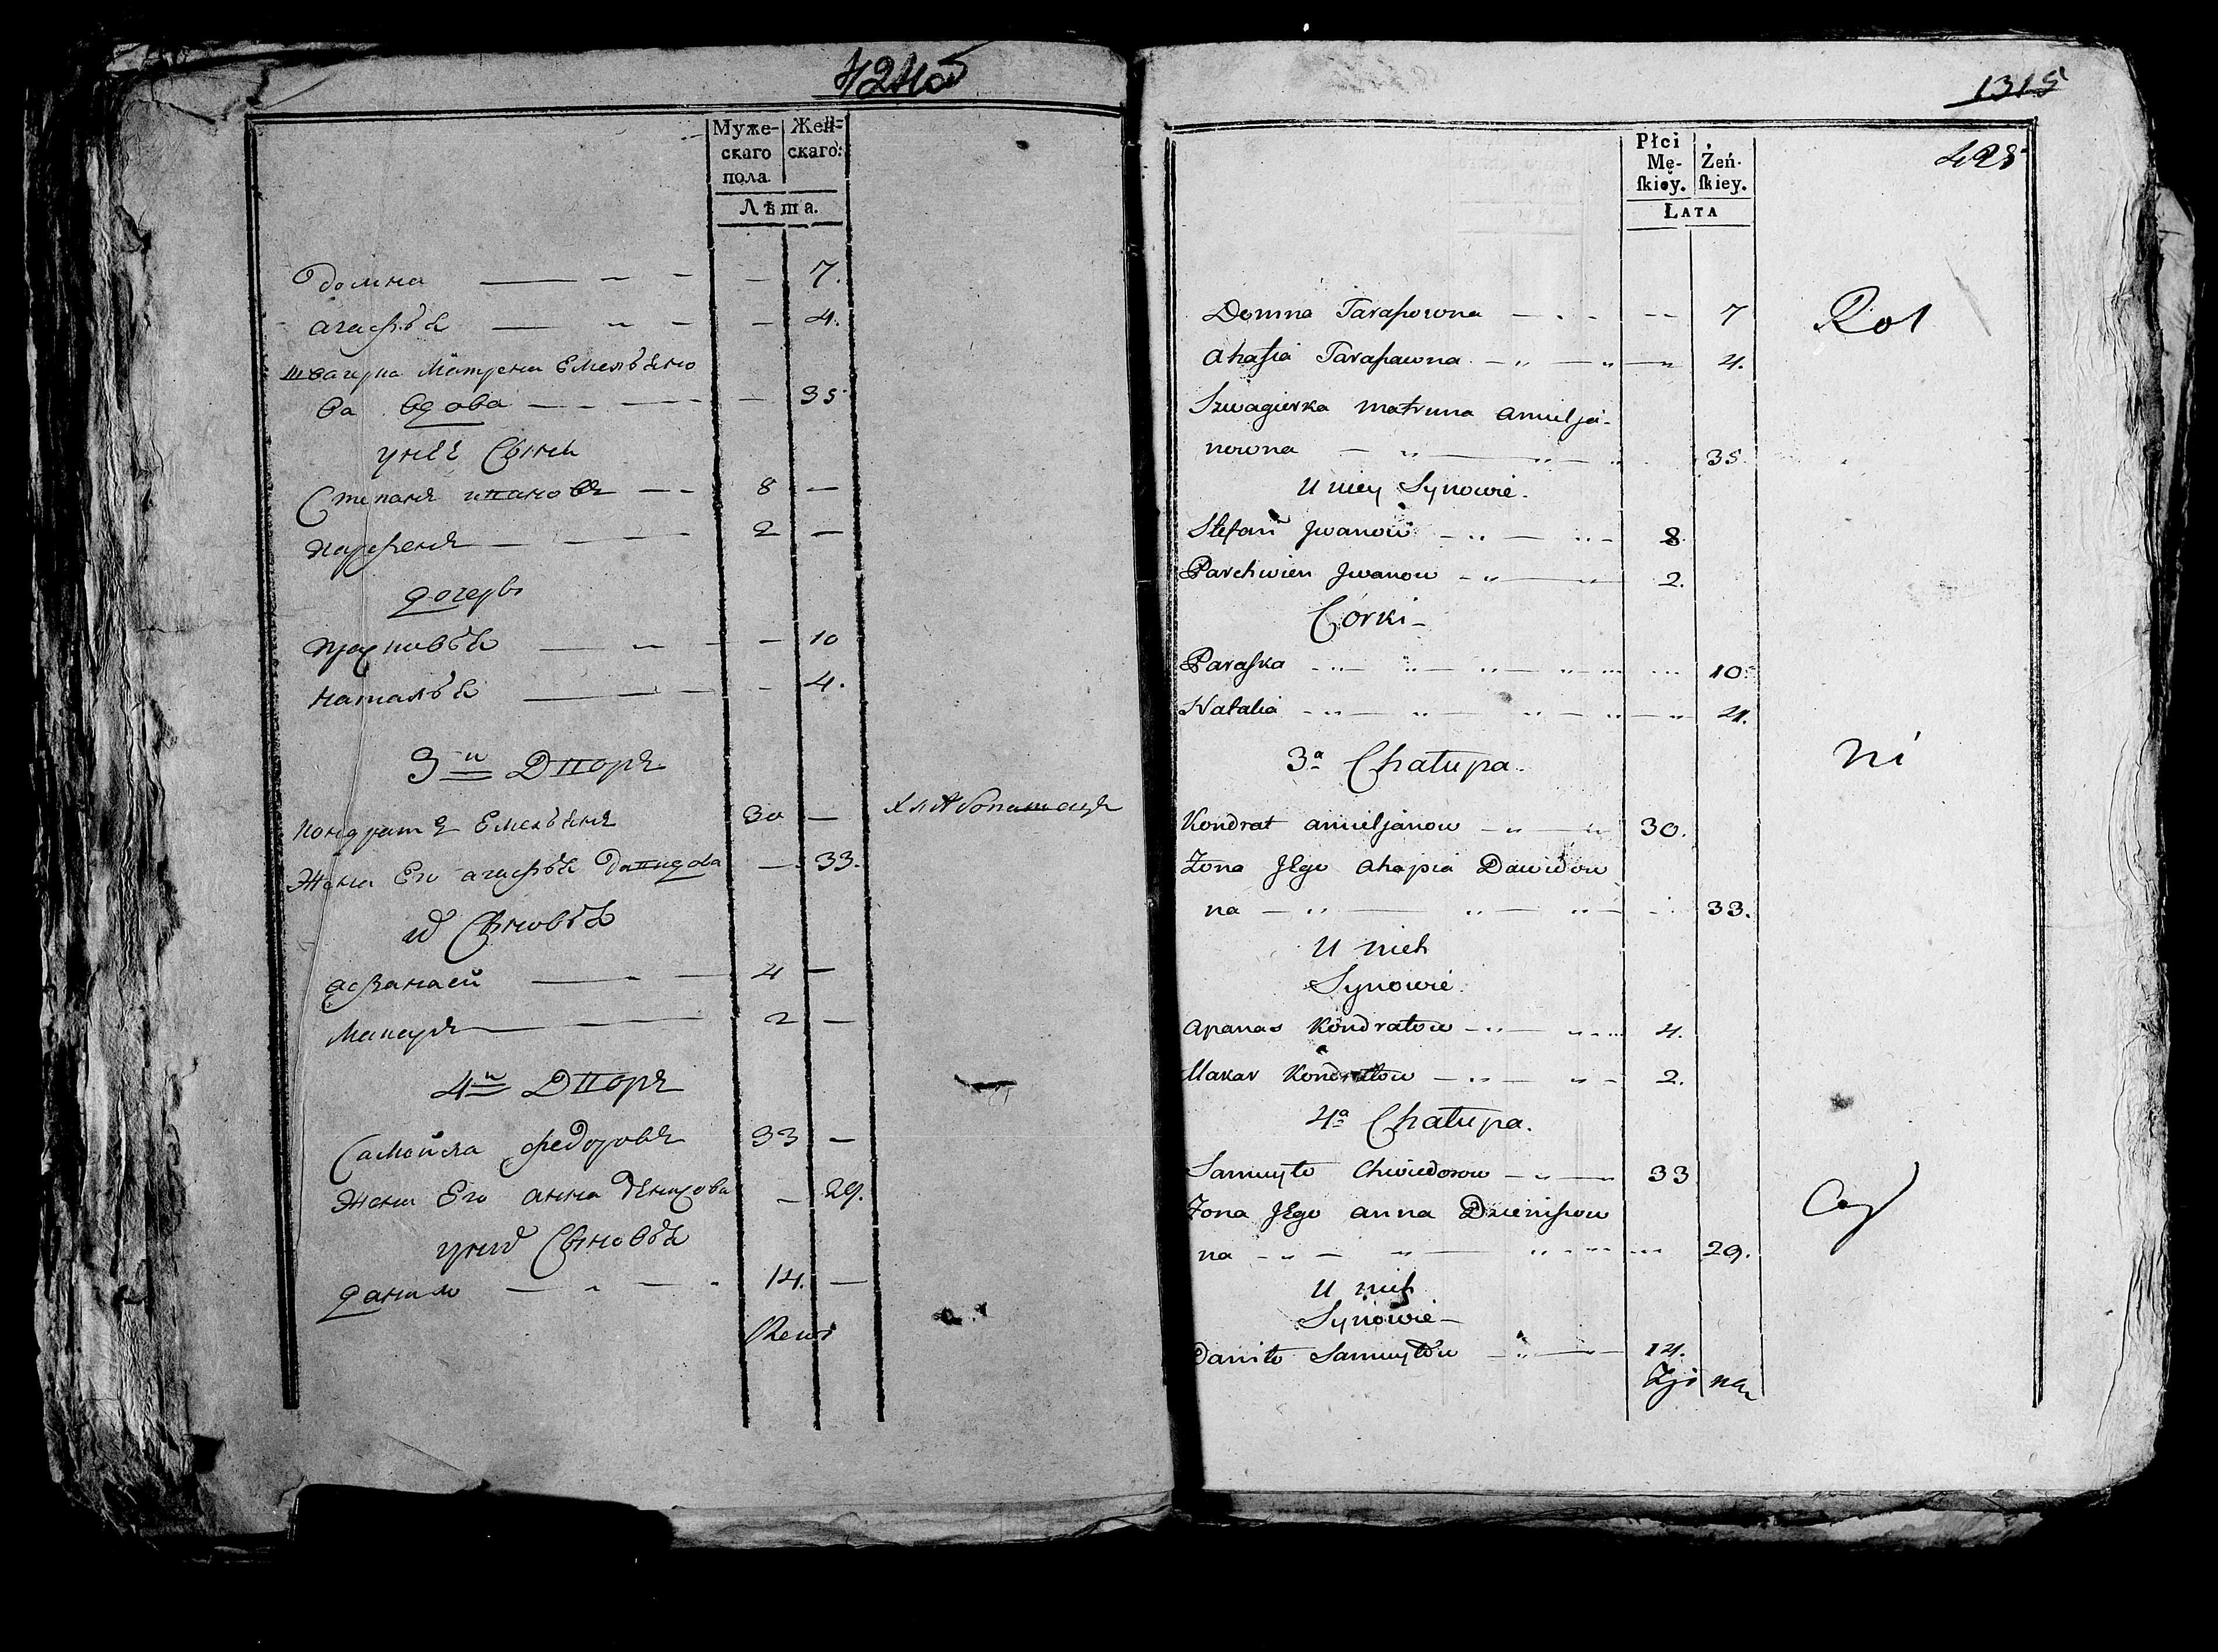 Муже- Жен-
скаго скаго:
пола
Лѣта.
Домна — „ - - 7.
Агафья — „ - - 4.
Швагерка Матрена Емельяно
ва вдова — - - - 35
у нее Сыны
Степанъ Ивановъ - - 8 —
Парфенъ - - - 2 —
дочерь
Прасковья — „ - - 10
Наталья — - - 4.
3й Дворъ
Кондратъ Емельянъ 30 —
Жена Его Агафья Давидова — 33.
Сыновья
Афанасей — - - 4 —
Макаръ — - 2 —
4й Дворъ
Самойла Федоровъ 33 —
Жена Его Анна Денисова — 29.
у них Сыновья
Данило — „ — „ 14. —
1315
425
Płci
Mę- Żeń-
skiey. skiey.
LATA
Domna Tarasowna — - - -- 7
Ahafia Tarasawna — „ — „ — „ 4.
Rol
Szwagierka Matruna Amieljá-
nowna — „ — „ — „ 35.
U niey Synowie.
Stefan Jwanow — „ — „ - 8.
Parchwien Jwanow - „ — „ 2.
Córki -
Paraska - „ — „ — „ — „ - 10.
Natalia - „ — „ — „ — „ 4.
3a Chałupa.
ni
Kondrat Amieljanow — „ — „ 30.
Żona Jego Ahapia Dawidow
na — „ — „ — „ - 33.
U nich
Synowie.
Apanas Kondratow — „ — „ 4.
Makar Kondratow — „ — „ - 2.
4a Chałupa.
Samuyło Chwiedorow — „ — 33
Żona Jego Anna Dzienisow
na - „ — „ — „ - 29.
U nich
Synowie —
Daniło Samuyłow — „ — 14.